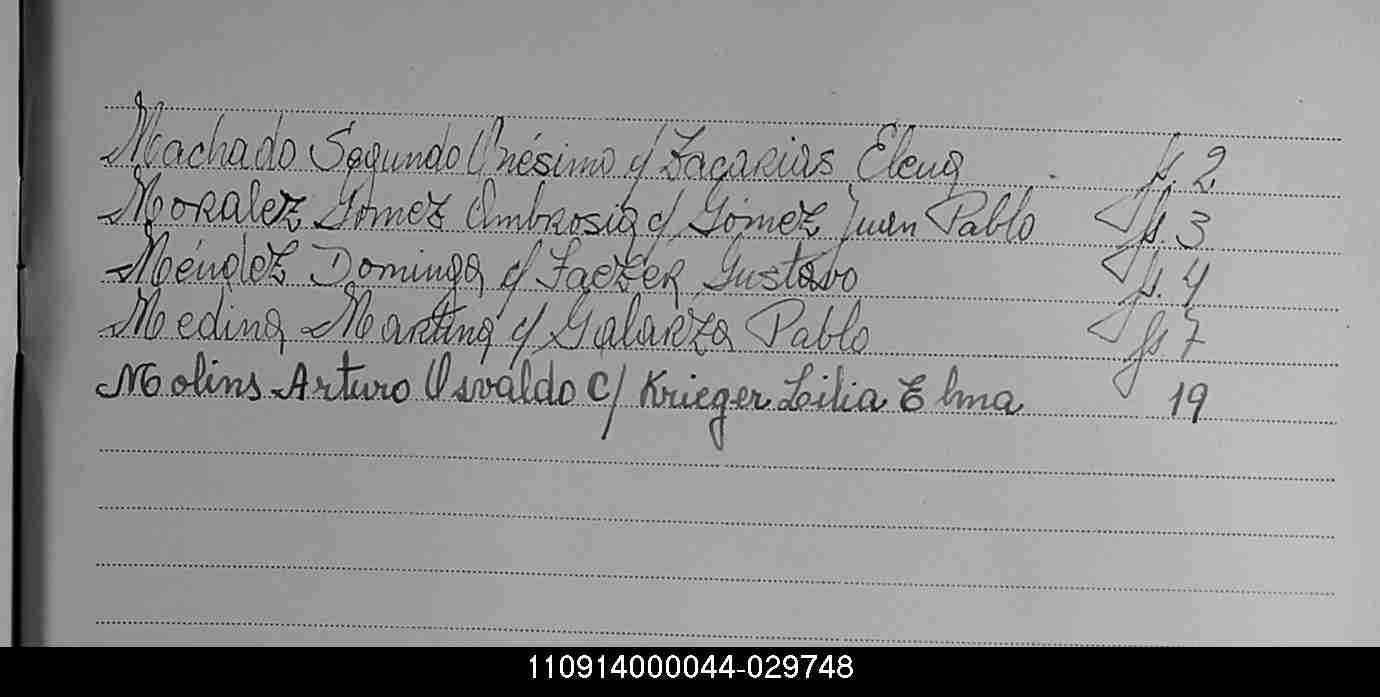 Machado Segundo Onésimo c/ Zacarias Elena fs. 2
Moralez Gómez Ambrosia c/ Gómez Juan Pablo fs. 3
Méndez Dominga c/ Gustavo fs. 4
Medina Martina c/ Galarza Pablo fs 7
Molins Arturo Osvaldo c/ Krieger Lilia Elma 19
110914000044-029748